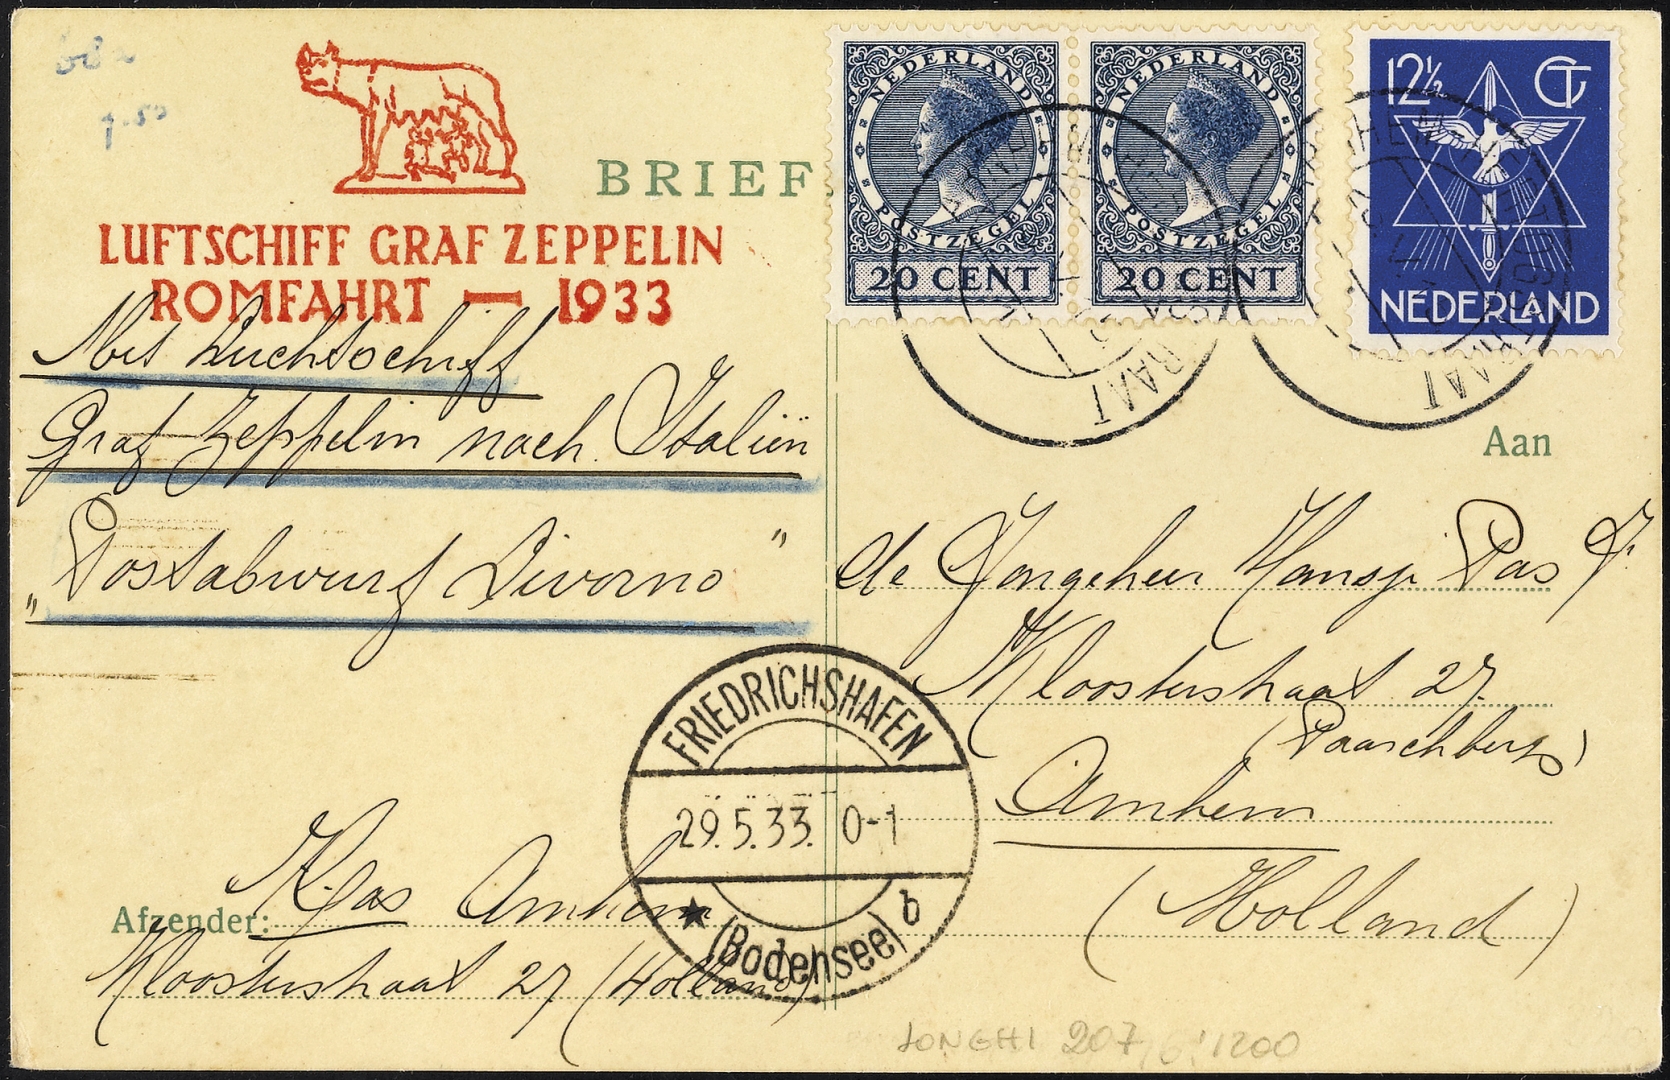 7.50
BRIEF
LUFTSCHIFF GRAF ZEPPELIN
ROMFAHRT — 1933
NEDERLAND
POSTZEGEL
20 CENT
NEDERLAND
POSTZEGEL
20 CENT
12½
NEDERLAND
Mit Luchtschiff
Graf Zeppelin nach Italiën
„Postabwurf Livorno"
Aan
de Jongeheer Hansje Pas
Kloosterstraat 27.
Arnhem
(Holland)
FRIEDRICHSHAFEN
29.5.33. 0-1
(Bodensee) b
Afzender: Pas Arnhem
Kloosterstraat 27 (Holland)
LONGHI 207 1200